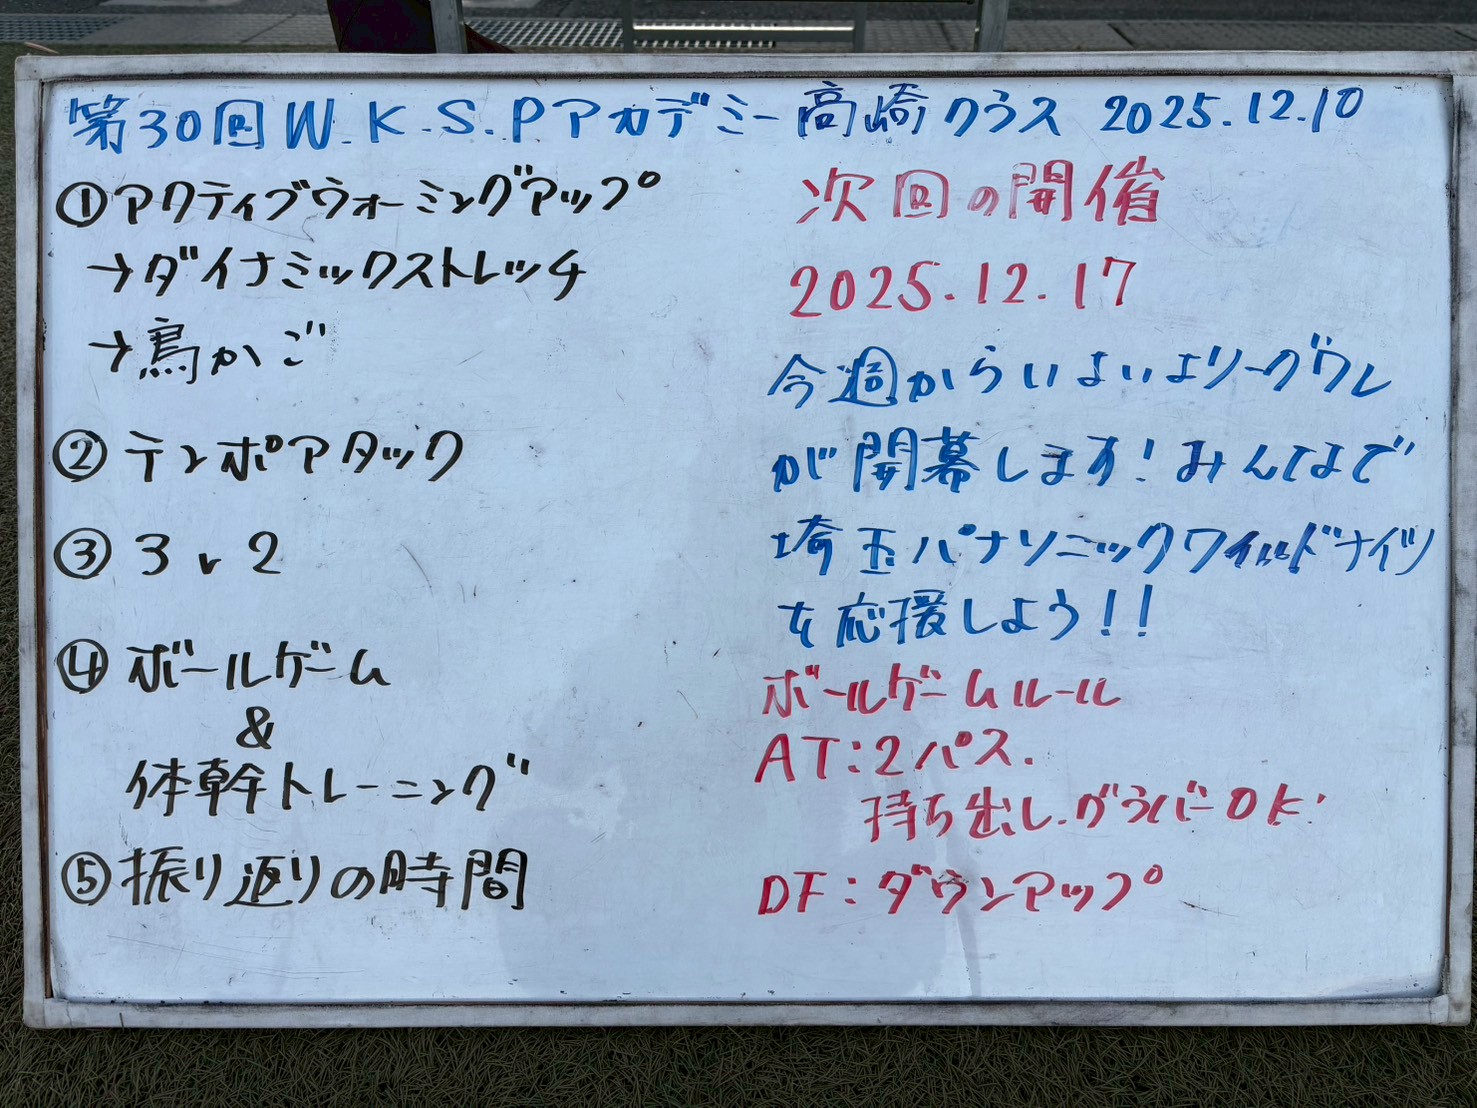 第30回W.K.S.Pアカデミー高崎クラス 2025.12.10
①アクティブウォーミングアップ
→ダイナミックストレッチ
→鳥かご
② テンポアタック
③ 3v2
④ ボールゲーム
&
体幹トレーニング
⑤振り返りの時間
次回の開催
2025.12.17
今週からいよいよリーグワン
が開幕します!みんなで
埼玉パナソニックワイルドナイツ
を応援しよう!!
ボールゲームルール
AT:2パス.
持ち出し.グラバーOK!
DF:ダウンアップ